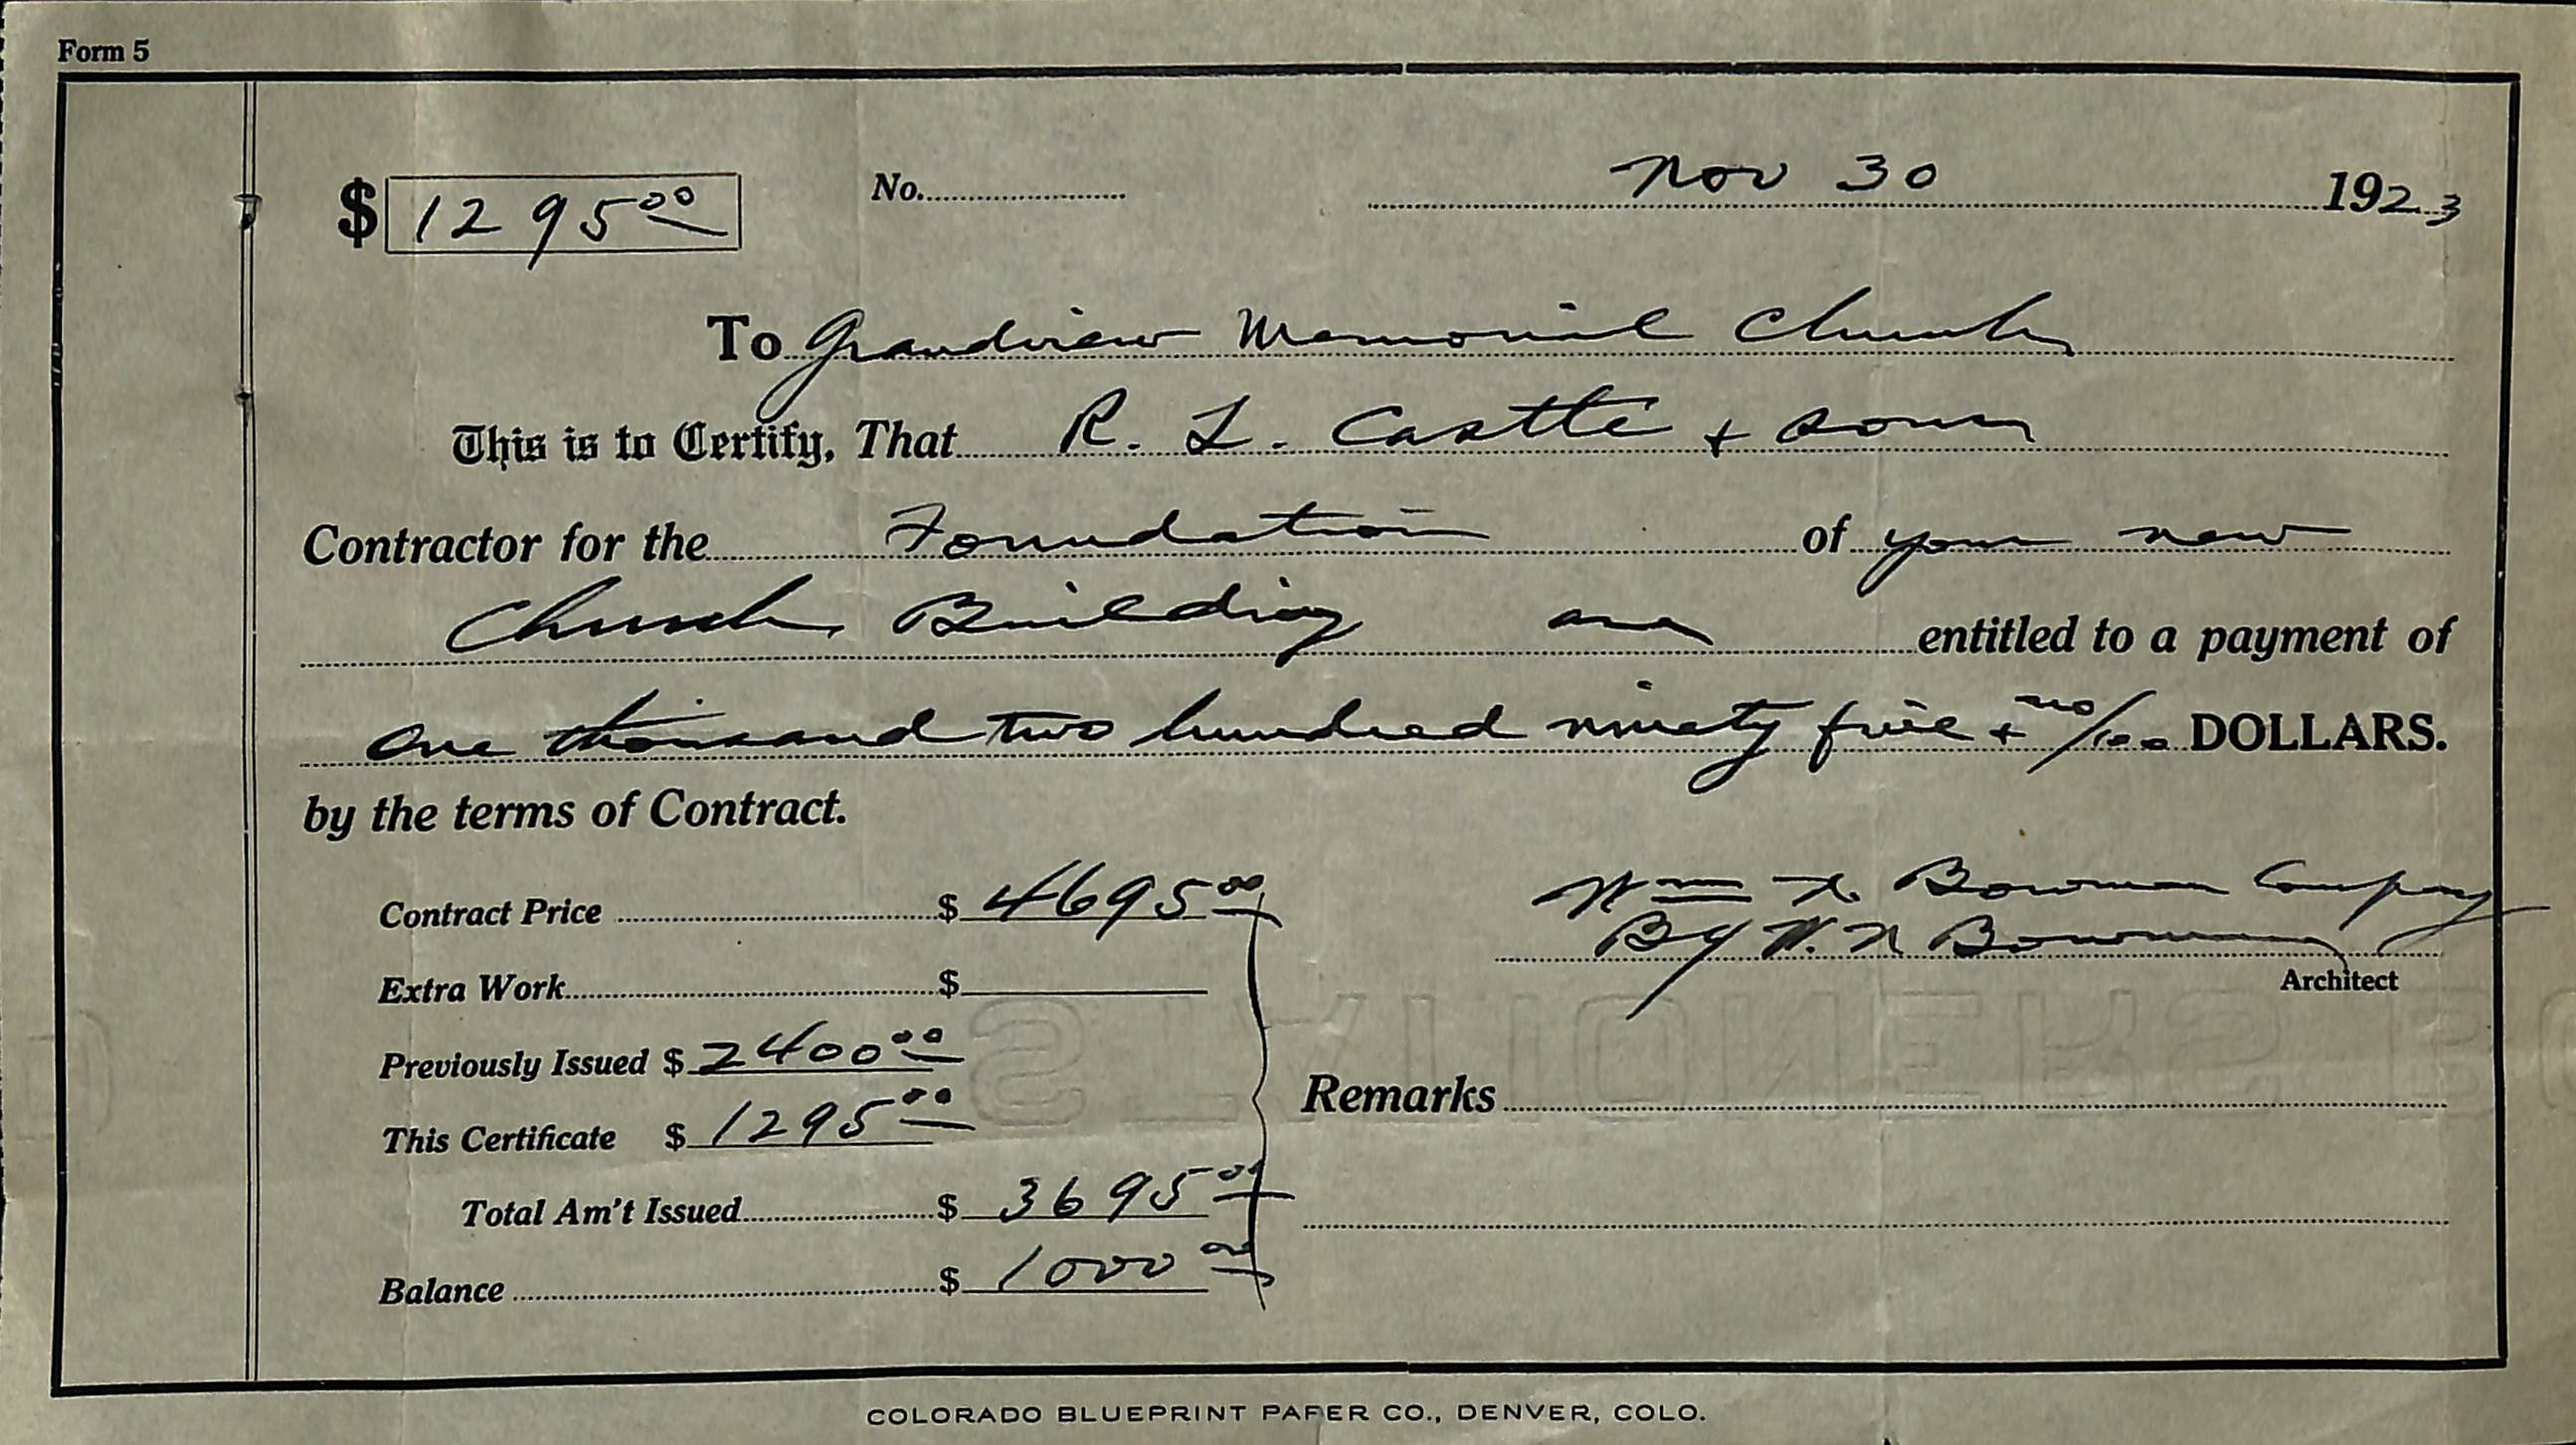 Form 5
$ 1295 00 No. Nov 30 1923
To Grandview Memorial Church
This is to Certify, That R. L. Castle + Sons
Contractor for the Foundation of your new
Church Building are entitled to a payment of
One thousand two hundred ninety five + no/100 DOLLARS.
by the terms of Contract.
Contract Price $ 4695 00
Wm N. Bowman Company
By W. N Bowman
Architect
Extra Work $
Previously Issued $ 2400 00
This Certificate $ 1295 00
Remarks
Total Am't Issued $ 3695 00
Balance $ 1000 00
COLORADO BLUEPRINT PAPER CO., DENVER, COLO.